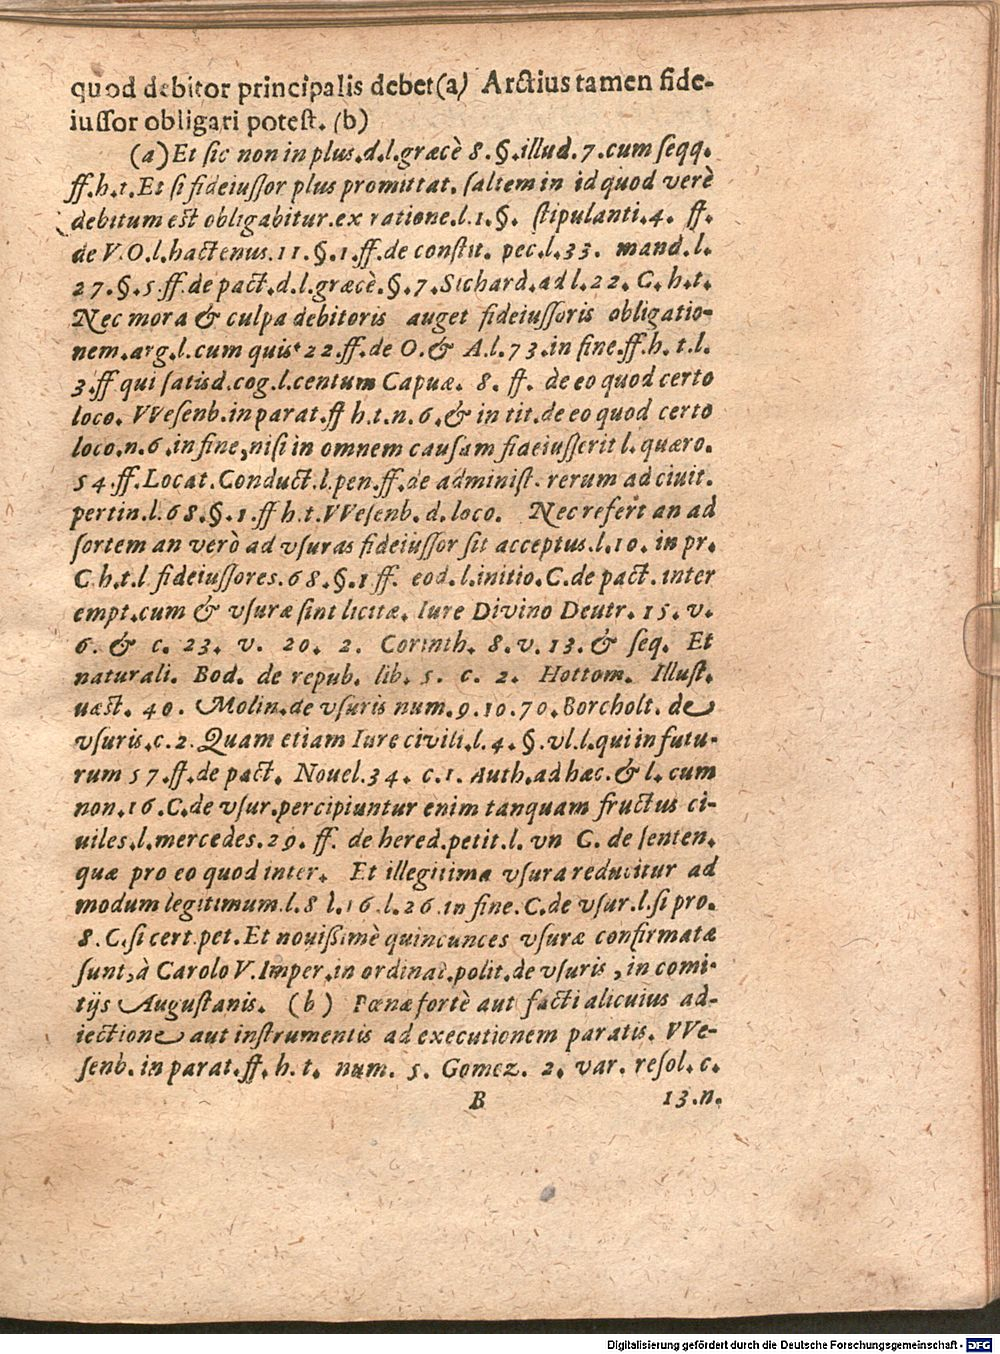 quod debitor principalis debet(a) Arctius tamen fide-
iuſſor obligari poteſt. (b)
(a)Et ſic non in plus.d.l.græcè 8.§.illud.7.cum ſeqq.
ff.h.t.Et ſi fideiuſſor plus promittat. ſaltem in id quod verè
debitum est obligabitur.ex ratione.l.1.§. ſtipulanti.4. ff.
de V.O.l.hactenus.11.§.1.ff.de conſtit. pec.l.33. mand.l.
27.§.5 ff.de pact.d.l.græcè.§.7.Sichard.ad l.22. C.h.t.
Nec mora & culpa debitoris auget fideiuſſoris obligatio-
nem.arg.l.cum quis 22.ff.de O.& A.l.73.in fine.ff.h.t.l.
3.ff qui ſatisd.cog.l.centum Capuæ. 8. ff. de eo quod certo
loco. VVeſenb.in parat.ff h.t.n.6.& in tit.de eo quod certo
loco.n.6.in fine,niſi in omnem cauſam fideiuſſerit l.quæro.
54.ff.Locat.Conduct.l.pen.ff.de adminiſt. rerum ad ciuit.
pertin.l.68.§.1.ff h.t.VVeſenb.d.loco. Nec refert an ad
ſortem an verò ad vſuras fideiuſſor ſit acceptus.l.10. in pr.
C h.t.l fideiuſſores.68.§.1 ff. eod.l.initio.C.de pact. inter
empt.cum & vſuræ ſint licitæ. Iure Divino Deutr. 15. v.
6. & c. 23. v. 20. 2. Corinth. 8. v. 13. & ſeq. Et
naturali. Bod. de repub. lib. 5. c. 2. Hottom. Illuſt.
uæst. 40. Molin.de vſuris num.9.10.70.Borcholt. de
vſuris.c.2.Quam etiam Iure civili.l.4.§.vl.l.qui in futu-
rum 57.ff.de pact. Nouel.34. c.1. Auth.ad hæc.& l. cum
non.16.C.de vſur.percipiuntur enim tanquam fructus ci-
uiles.l.mercedes.29. ff. de hered.petit.l. vn C. de ſenten.
quæ pro eo quod inter. Et illegitima vſura reducitur ad
modum legitimum.l.8 l.16.l.26.in fine.C.de vſur.l.ſi pro.
8.C.ſi cert.pet.Et nouiſſimè quincunces vſuræ confirmatæ
ſunt,à Carolo V.Imper.in ordinat.polit.de vſuris, in comi-
tijs Auguſtanis. (b) Pœnæ fortè aut facti alicuius ad-
iectione aut inſtrumentis ad executionem paratis. VVe-
ſenb. in parat.ff.h.t. num. 5. Gomez. 2. var. reſol. c.
B 13.n.
Digitalisierung gefördert durch die Deutsche Forschungsgemeinschaft - DFG